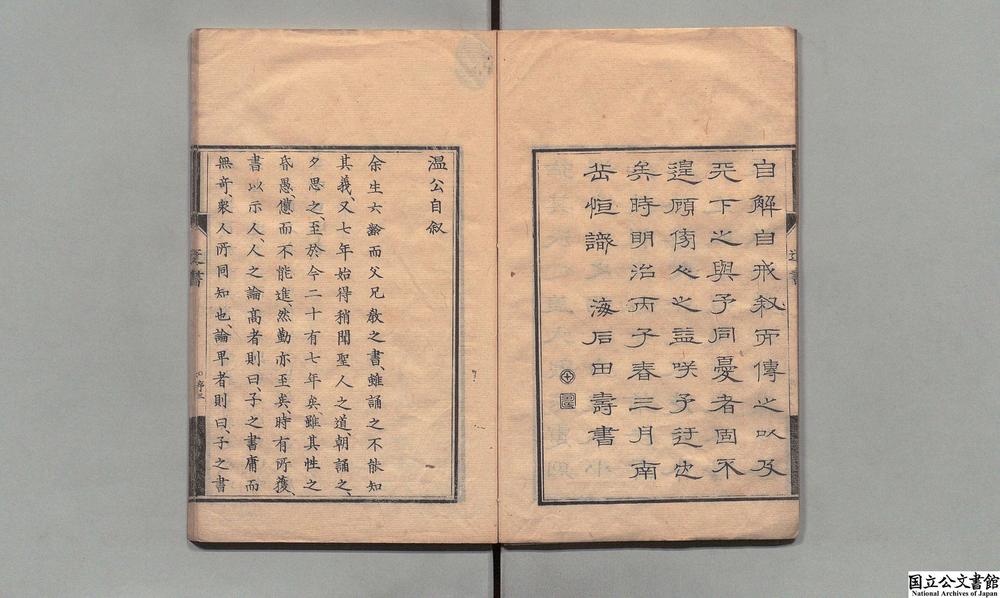 自解自戒叙而傳之以及
天下之與予同憂者固不
遑顧傍人之益咲予迂也
矣時明治丙子春三月南
岳恒識　海石田壽書
温公自叙
余生六齡而父兄教之書、雖誦之不能知
其義、又七年始得稍聞聖人之道、朝誦之、
夕思之、至於今二十有七年矣、雖其性之
昏愚、憊而不能進、然勤亦至矣、時有所獲、
書以示人、人之論高者則曰、子之書庸而
無奇、衆人所同知也、論卑者則曰、子之書
国立公文書館
National Archives of Japan